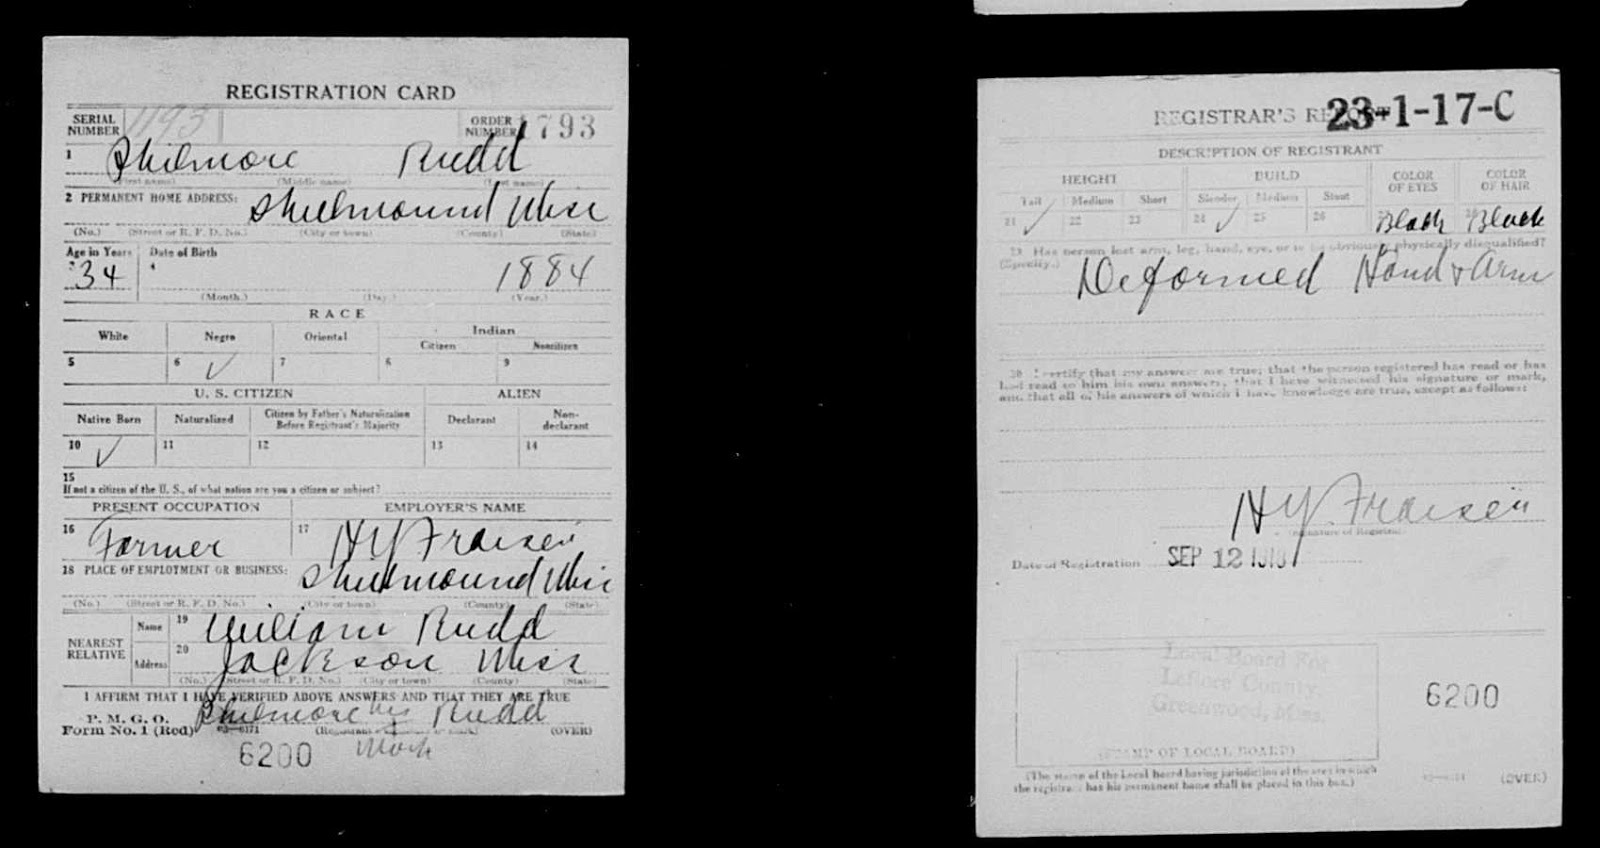 REGISTRATION CARD
SERIAL NUMBER 1193 ORDER NUMBER 1793
1 Philmore Rudd
(First name) (Middle name) (Last name)
2 PERMANENT HOME ADDRESS: Shellmound Miss
(No.) (Street or R. F. D. No.) (City or town) (County) (State)
Age in Years Date of Birth
3 34 4 1884
(Month.) (Day.) (Year.)
RACE
White Negro Oriental Indian
Citizen Noncitizen
5 6 ✓ 7 8 9
U. S. CITIZEN ALIEN
Native Born Naturalized Citizen by Father's Naturalization Before Registrant's Majority Declarant Non-declarant
10 ✓ 11 12 13 14
15
If not a citizen of the U. S., of what nation are you a citizen or subject?
PRESENT OCCUPATION EMPLOYER'S NAME
16 Farmer 17 H Y
18 PLACE OF EMPLOYMENT OR BUSINESS: Shellmound Miss
(No.) (Street or R. F. D. No.) (City or town) (County) (State)
NEAREST RELATIVE Name 19 William Rudd
Address 20 Jackson Miss
(No.) (Street or R. F. D. No.) (City or town) (County) (State)
I AFFIRM THAT I HAVE VERIFIED ABOVE ANSWERS AND THAT THEY ARE TRUE
P. M. G. O. Philmore his Rudd
Form No. 1 (Red) (OVER)
6200 mark
REGISTRAR'S REPORT 23-1-17-C
DESCRIPTION OF REGISTRANT
HEIGHT BUILD COLOR OF EYES COLOR OF HAIR
Tall Medium Short Slender Medium Stout
21 ✓ 22 23 24 ✓ 25 26 Black Black
29 Has person lost arm, leg, hand, eye, or is he obviously physically disqualified?
(Specify.) Deformed Hand & Arm
30 I certify that my answers are true; that the person registered has read or has
had read to him his own answers, that I have witnessed his signature or mark,
and that all of his answers of which I have knowledge are true, except as follows:
H Y
(Signature of Registrar)
Date of Registration SEP 12 1918
Local Board For
Leflore County,
Greenwood, Miss.
6200
(STAMP OF LOCAL BOARD)
(The stamp of the Local Board having jurisdiction of the area in which
the registrant has his permanent home shall be placed in this box.)
(OVER)